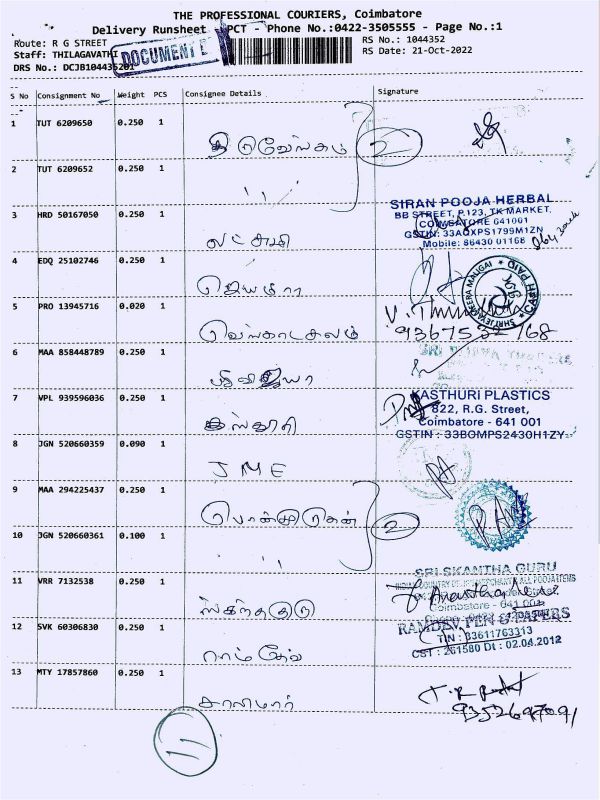 THE PROFESSIONAL COURIERS, Coimbatore
Delivery Runsheet PCT - Phone No.:0422-3505555 - Page No.:1
Route: R G STREET
RS No.: 1044352
Staff: THILAGAVATHI
RS Date: 21-Oct-2022
DRS No.: DCJB104435201
DOCUMENT
S No Consignment No Weight PCS Consignee Details Signature
1 TUT 6209650 0.250 1
2
2 TUT 6209652 0.250 1
" "
SIRAN POOJA HERBAL
BB STREET, P.123, TK MARKET,
COIMBATORE 641001
GSTIN: 33AOXPS1799M1ZN
Mobile: 86430 01168
3 HRD 50167050 0.250 1
லட்சுமி
4 EDQ 25102746 0.250 1
ஜெயமாரு
CASH PAID
5 PRO 13945716 0.020 1
வெங்கடாசலம்
6 MAA 858448789 0.250 1
ஸ்ரீவிஜயா
7 VPL 939596036 0.250 1
கஸ்தூரி
KASTHURI PLASTICS
822, R.G. Street,
Coimbatore - 641 001
GSTIN : 33BOMPS2430H1ZY
8 JGN 520660359 0.090 1
JME
9 MAA 294225437 0.250 1
2
10 JGN 520660361 0.100 1
" "
SRI SKANTHA GURU
11 VRR 7132538 0.250 1
ஸ்கந்தகுரு
Coimbatore - 641 001
RAMDEV PEN & PAPERS
TIN : 33611763313
CST : 261580 Dt : 02.04.2012
12 SVK 60306830 0.250 1
ராம்தேவ்
13 MTY 17857860 0.250 1
சாலிமார்
9352697091
11